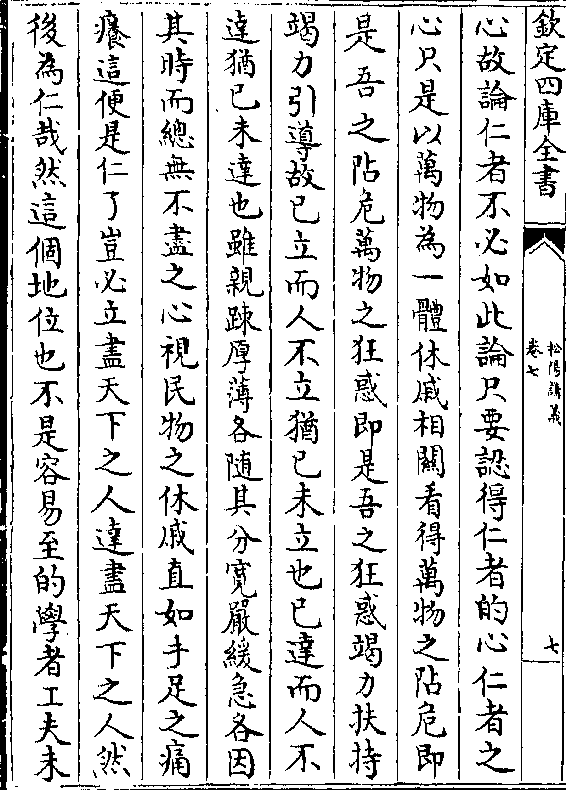 欽定四庫全書
松陽講義
卷七
七
心故論仁者不必如此論只要認得仁者的心仁者之
心只是以萬物為一體休戚相關看得萬物之阽危即
是吾之阽危萬物之狂惑即是吾之狂惑竭力扶持
竭力引導故已立而人不立猶已未立也已達而人不
達猶已未達也雖親踈厚薄各随其分寛嚴緩急各因
其時而總無不盡之心視民物之休戚直如手足之痛
癢這便是仁了豈必立盡天下之人達盡天下之人然
後為仁哉然這個地位也不是容易至的學者工夫未